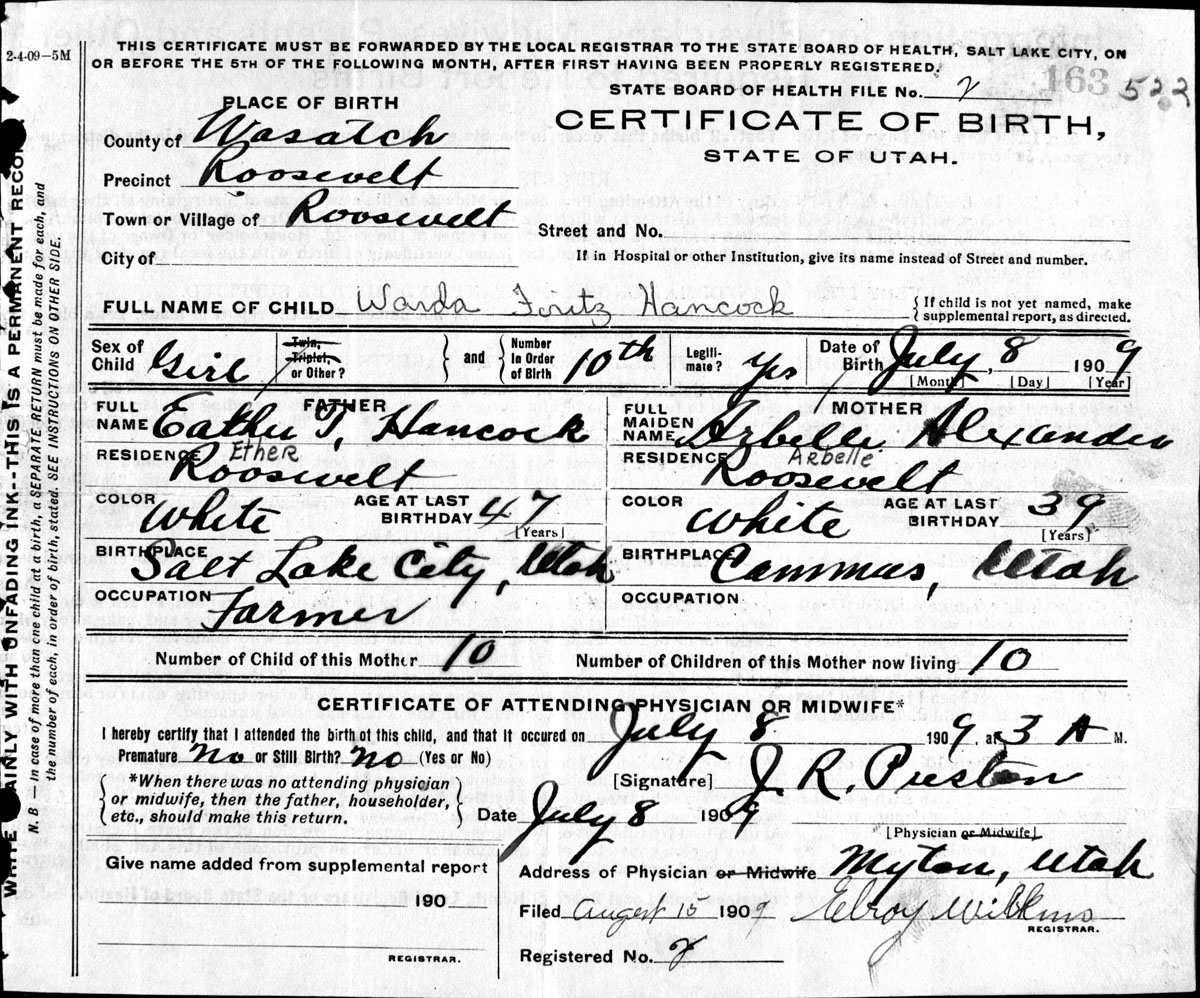 2-4-09—5M
THIS CERTIFICATE MUST BE FORWARDED BY THE LOCAL REGISTRAR TO THE STATE BOARD OF HEALTH, SALT LAKE CITY, ON
OR BEFORE THE 5TH OF THE FOLLOWING MONTH, AFTER FIRST HAVING BEEN PROPERLY REGISTERED.
STATE BOARD OF HEALTH FILE No. 2 163 522
PLACE OF BIRTH
CERTIFICATE OF BIRTH,
STATE OF UTAH.
County of Wasatch
Precinct Roosevelt
Town or Village of Roosevelt
Street and No.
City of
If in Hospital or other Institution, give its name instead of Street and number.
FULL NAME OF CHILD Wanda Foutz Hancock { If child is not yet named, make supplemental report, as directed.
Sex of Child Girl Twin, Triplet, or Other? } and { Number in Order of Birth 10th Legiti-mate? yes Date of Birth July 8 1909
[Month] [Day] [Year]
FATHER MOTHER
FULL NAME Eather T, Hancock FULL MAIDEN NAME Arbelle Alexander
Ether Arbelle
RESIDENCE Roosevelt RESIDENCE Roosevelt
COLOR White AGE AT LAST BIRTHDAY 47 [Years] COLOR White AGE AT LAST BIRTHDAY 39 [Years]
BIRTHPLACE Salt Lake City, Utah BIRTHPLACE Cammas, Utah
OCCUPATION Farmer OCCUPATION
Number of Child of this Mother 10 Number of Children of this Mother now living 10
CERTIFICATE OF ATTENDING PHYSICIAN OR MIDWIFE*
I hereby certify that I attended the birth of this child, and that it occured on July 8 1909, at 3 A M.
Premature No or Still Birth? No (Yes or No)
[Signature] J. R. Preston
{ *When there was no attending physician or midwife, then the father, householder, etc., should make this return. }
Date July 8 1909
[Physician or Midwife]
Give name added from supplemental report
Address of Physician or Midwife Myton, Utah
190
Filed August 15 1909 Elroy Wilkins
REGISTRAR.
Registered No. 2
REGISTRAR.
AINLY WITH UNFADING INK--THIS IS A PERMANENT RECO
N. B.—In case of more than one child at a birth, a SEPARATE RETURN must be made for each, and
the number of each, in order of birth, stated. SEE INSTRUCTIONS ON OTHER SIDE.